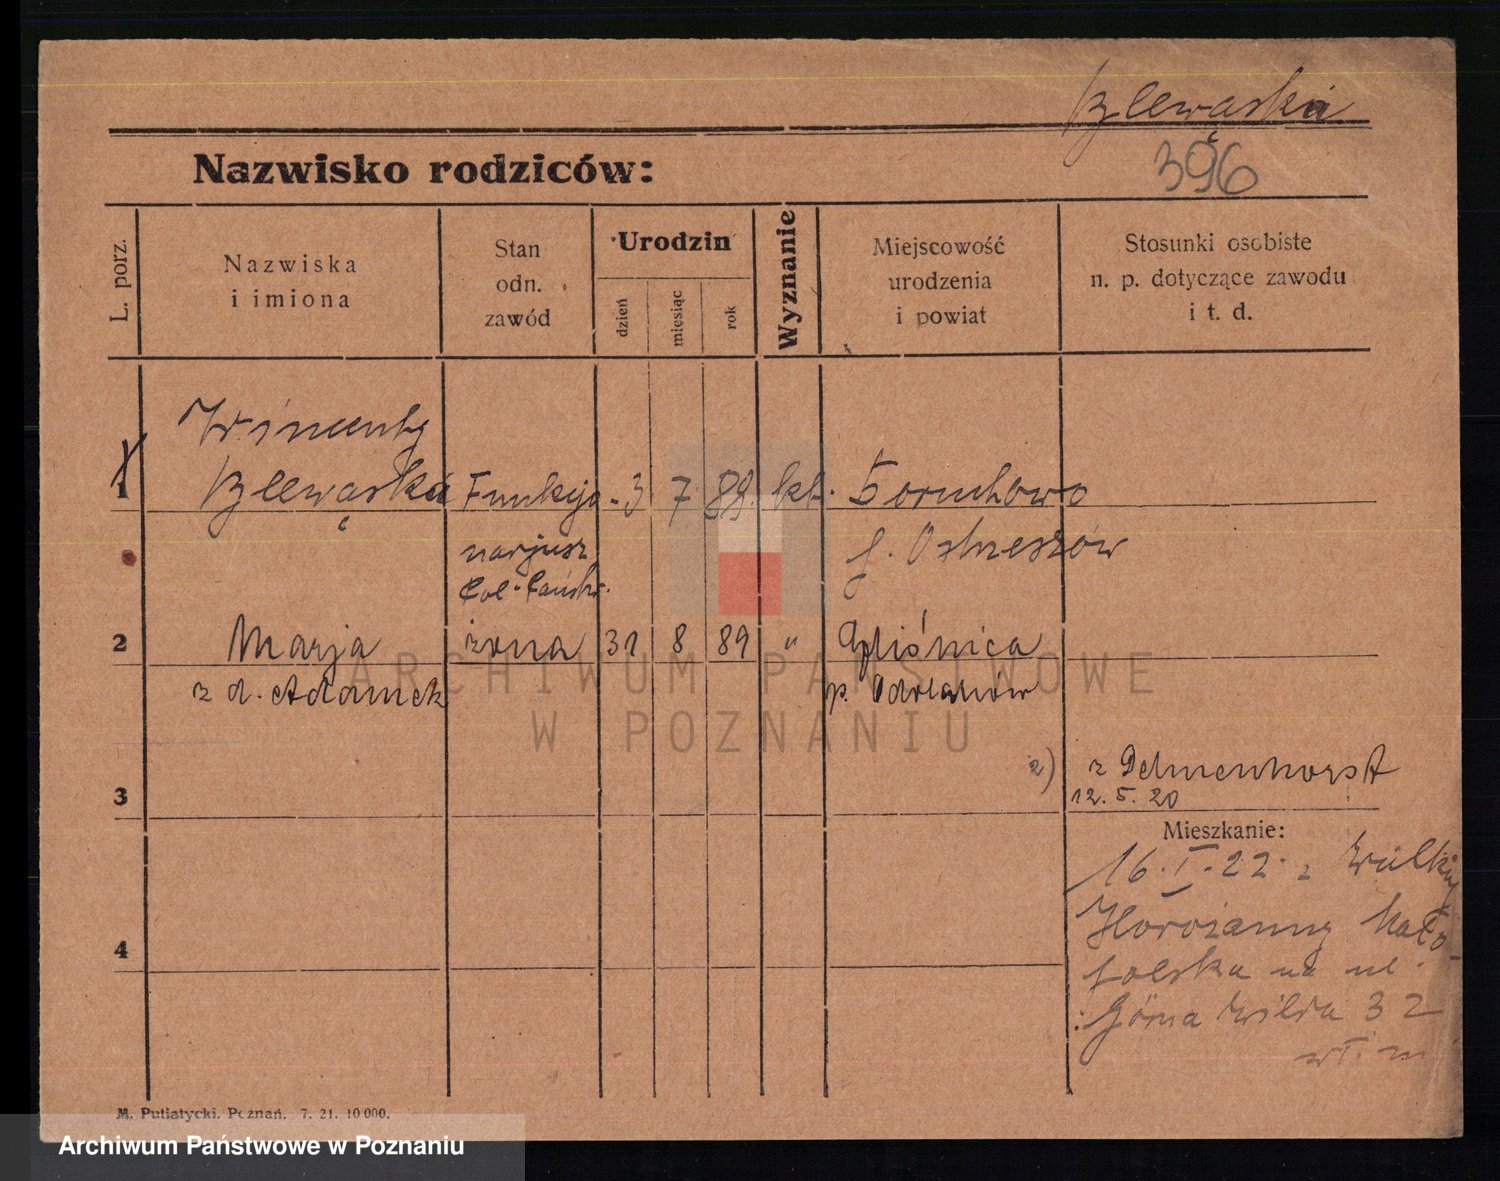 396
Nazwisko rodziców:
L. porz.
Nazwiska
i imiona
Stan
odn.
zawód
Urodzin
dzień
miesiąc
rok
Wyznanie
Miejscowość
urodzenia
i powiat
Stosunki osobiste
n. p. dotyczące zawodu
i t. d.
Wincenty
1 Funkcjo- 3 7 89. kt. Doruchowo
narjusz p. Ostrzeszów
Pol. Państw.
2 Marja żona 31 8 89 "
z d. Adamek p. Odolanów
2) z Delmenhorst
3 12. 5. 20
Mieszkanie:
16. I. 22 z
Horożanny Mało-
4
polska na ul.
Górna Wilda 32
wł. m
M. Putiatycki. Poznań. 7. 21. 10 000.
ARCHIWUM PAŃSTWOWE
W POZNANIU
Archiwum Państwowe w Poznaniu